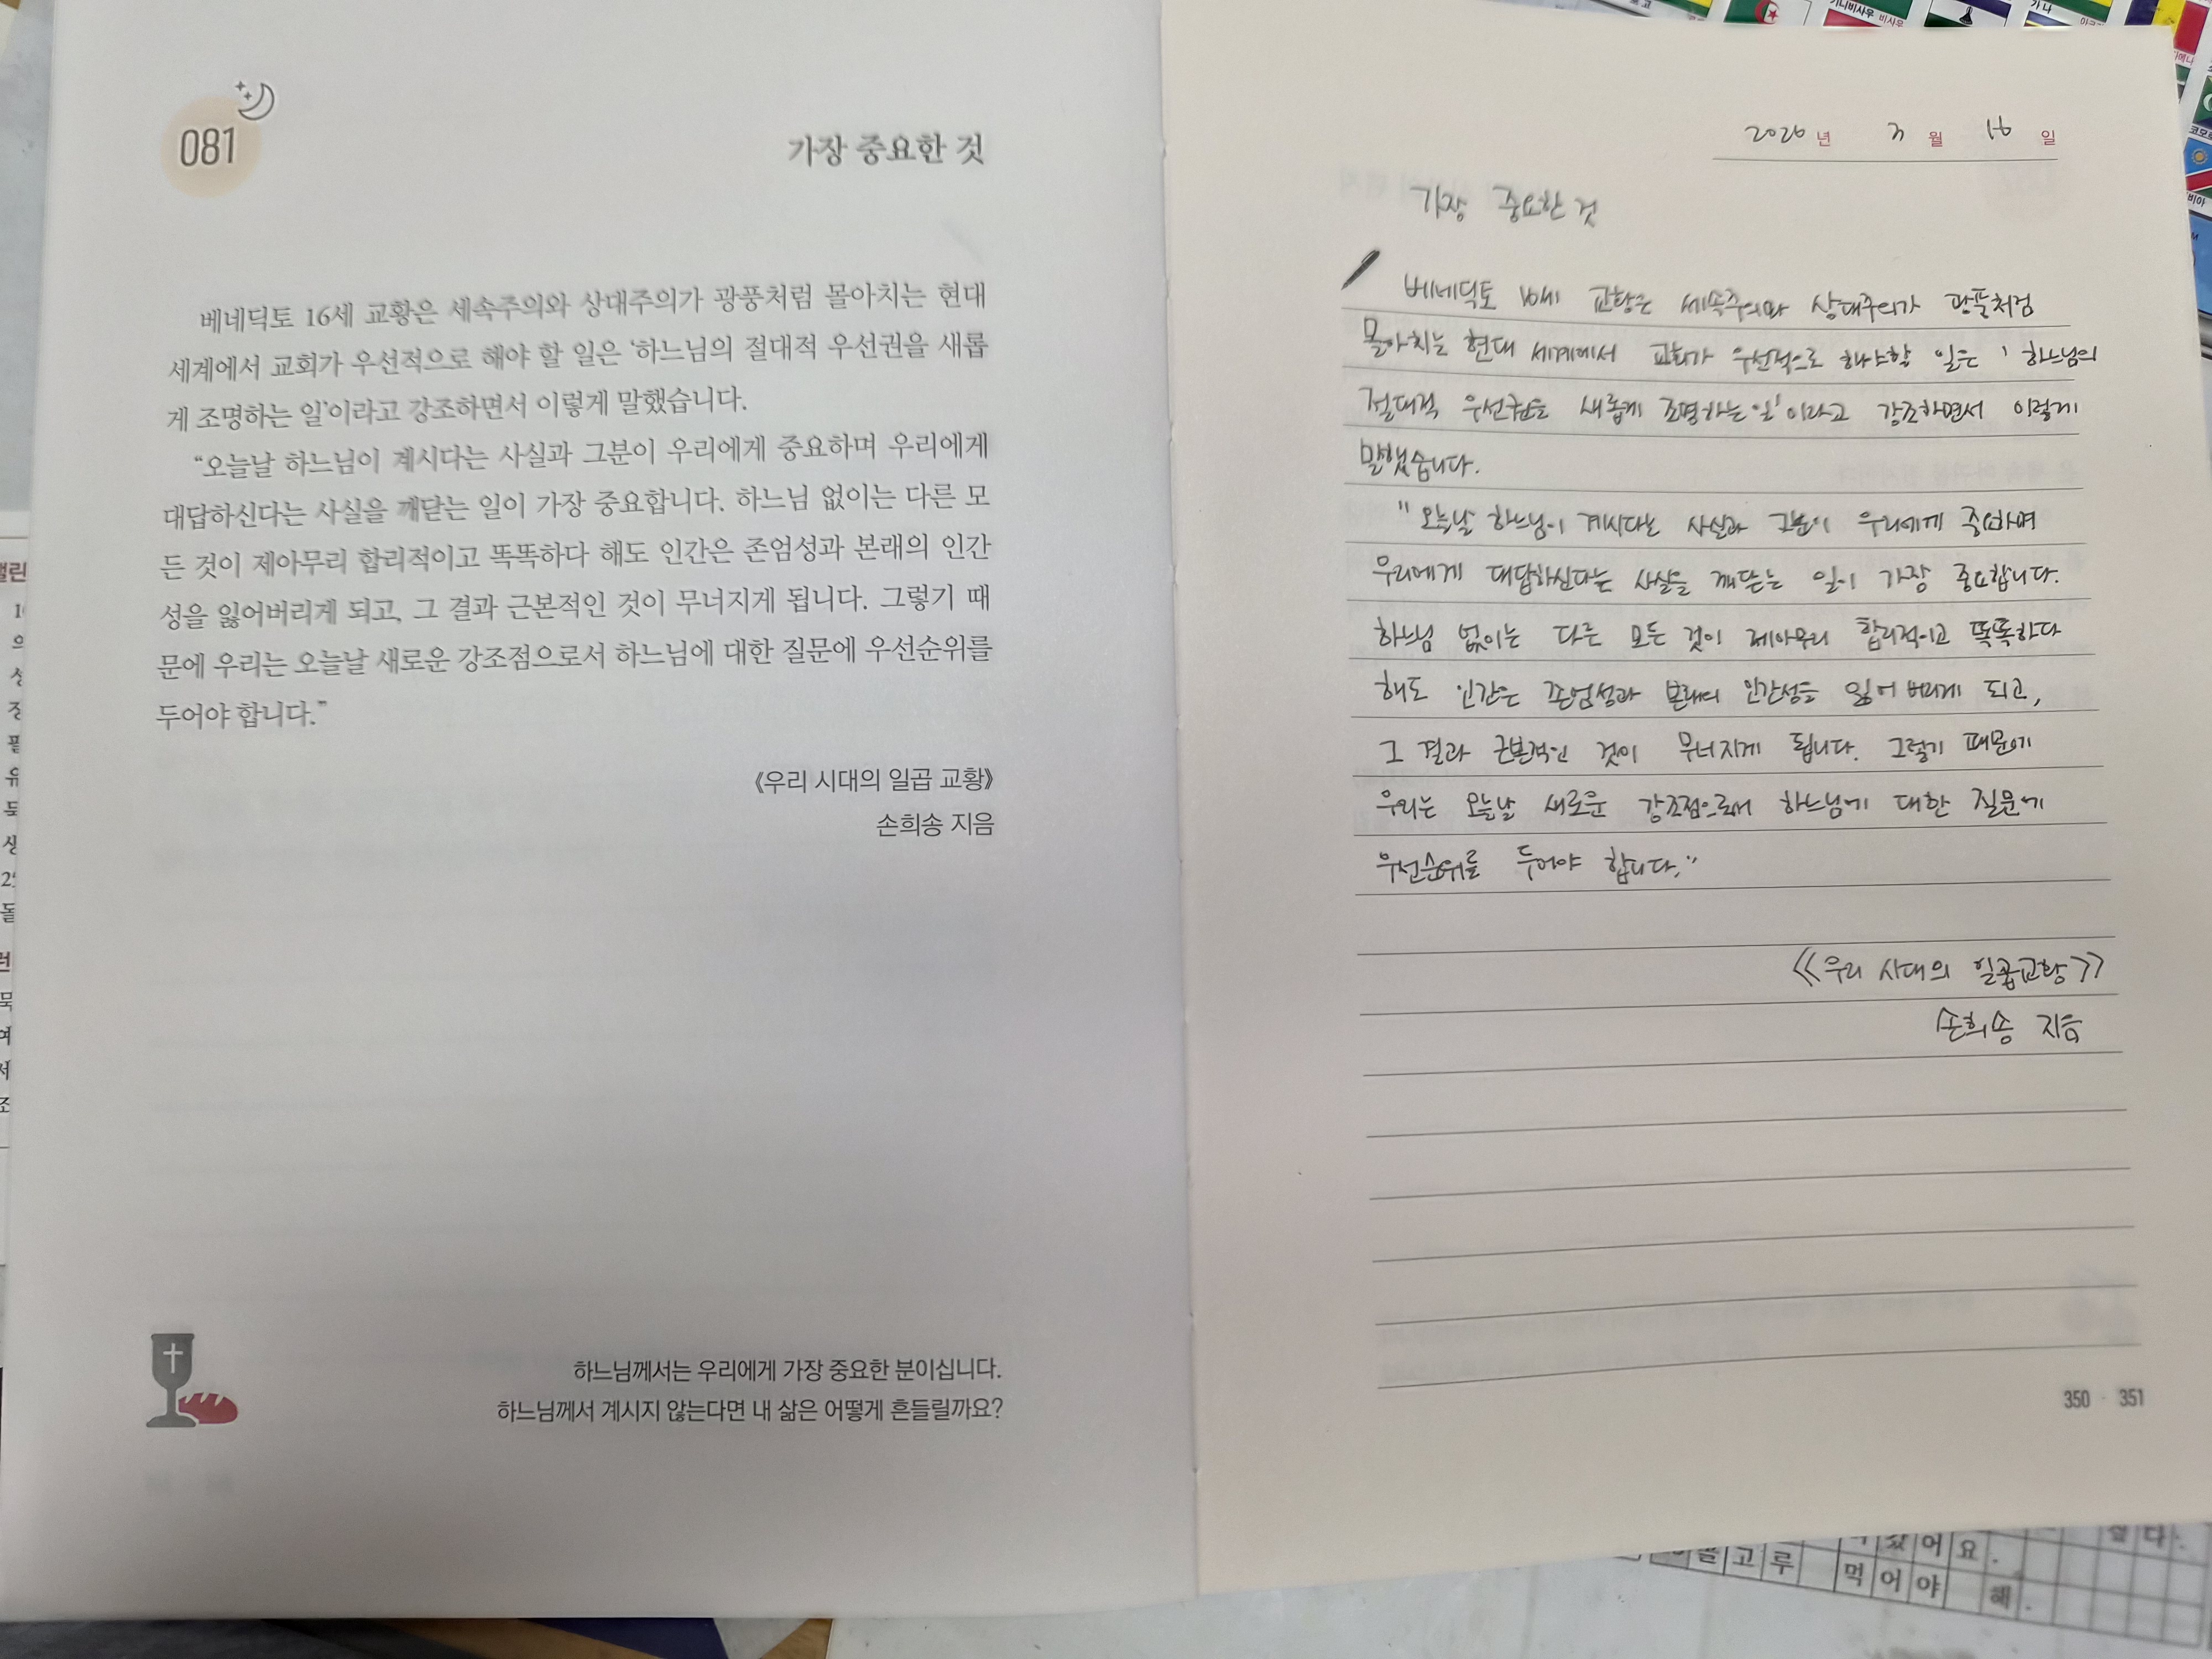 081
가장 중요한 것
베네딕토 16세 교황은 세속주의와 상대주의가 광풍처럼 몰아치는 현대
세계에서 교회가 우선적으로 해야 할 일은 ‘하느님의 절대적 우선권을 새롭
게 조명하는 일’이라고 강조하면서 이렇게 말했습니다.
“오늘날 하느님이 계시다는 사실과 그분이 우리에게 중요하며 우리에게
대답하신다는 사실을 깨닫는 일이 가장 중요합니다. 하느님 없이는 다른 모
든 것이 제아무리 합리적이고 똑똑하다 해도 인간은 존엄성과 본래의 인간
성을 잃어버리게 되고, 그 결과 근본적인 것이 무너지게 됩니다. 그렇기 때
문에 우리는 오늘날 새로운 강조점으로서 하느님에 대한 질문에 우선순위를
두어야 합니다.”
《우리 시대의 일곱 교황》
손희송 지음
하느님께서는 우리에게 가장 중요한 분이십니다.
하느님께서 계시지 않는다면 내 삶은 어떻게 흔들릴까요?
2026년 3월 16일
가장 중요한 것
베네딕토 16세 교황은 세속주의와 상대주의가 광풍처럼
몰아치는 현대 세계에서 교회가 우선적으로 해야할 일은 '하느님의
절대적 우선권을 새롭게 조명하는 일'이라고 강조하면서 이렇게
말했습니다.
"오늘날 하느님이 계시다는 사실과 그분이 우리에게 중요하며
우리에게 대답하신다는 사실을 깨닫는 일이 가장 중요합니다.
하느님 없이는 다른 모든 것이 제아무리 합리적이고 똑똑하다
해도 인간은 존엄성과 본래의 인간성을 잃어버리게 되고,
그 결과 근본적인 것이 무너지게 됩니다. 그렇기 때문에
우리는 오늘날 새로운 강조점으로서 하느님에 대한 질문에
우선순위를 두어야 합니다."
《우리 시대의 일곱교황》
손희송 지음
350 - 351
기니비사우
가나
고루 먹어야 해.